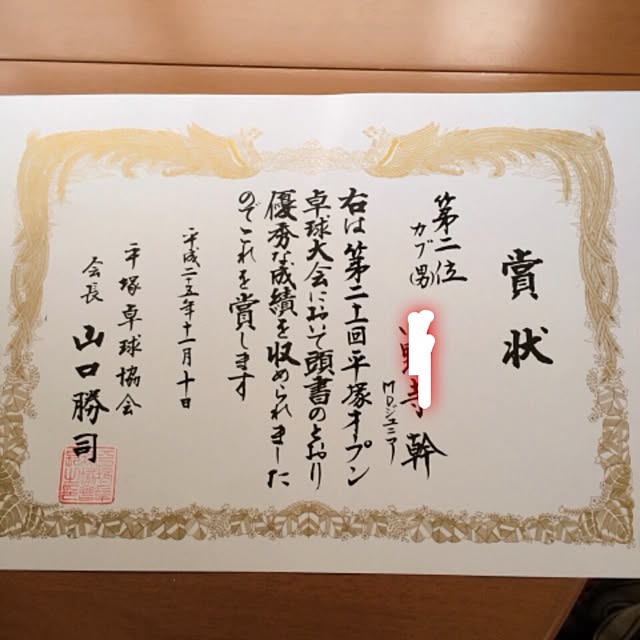 賞状
第二位
カブ(男)
MDジュニア
幹
右は第二十一回平塚オープン
卓球大会において頭書のとおり
優秀な成績を収められました
のでこれを賞します
平成二五年十一月十日
平塚卓球協会
会長 山口勝司